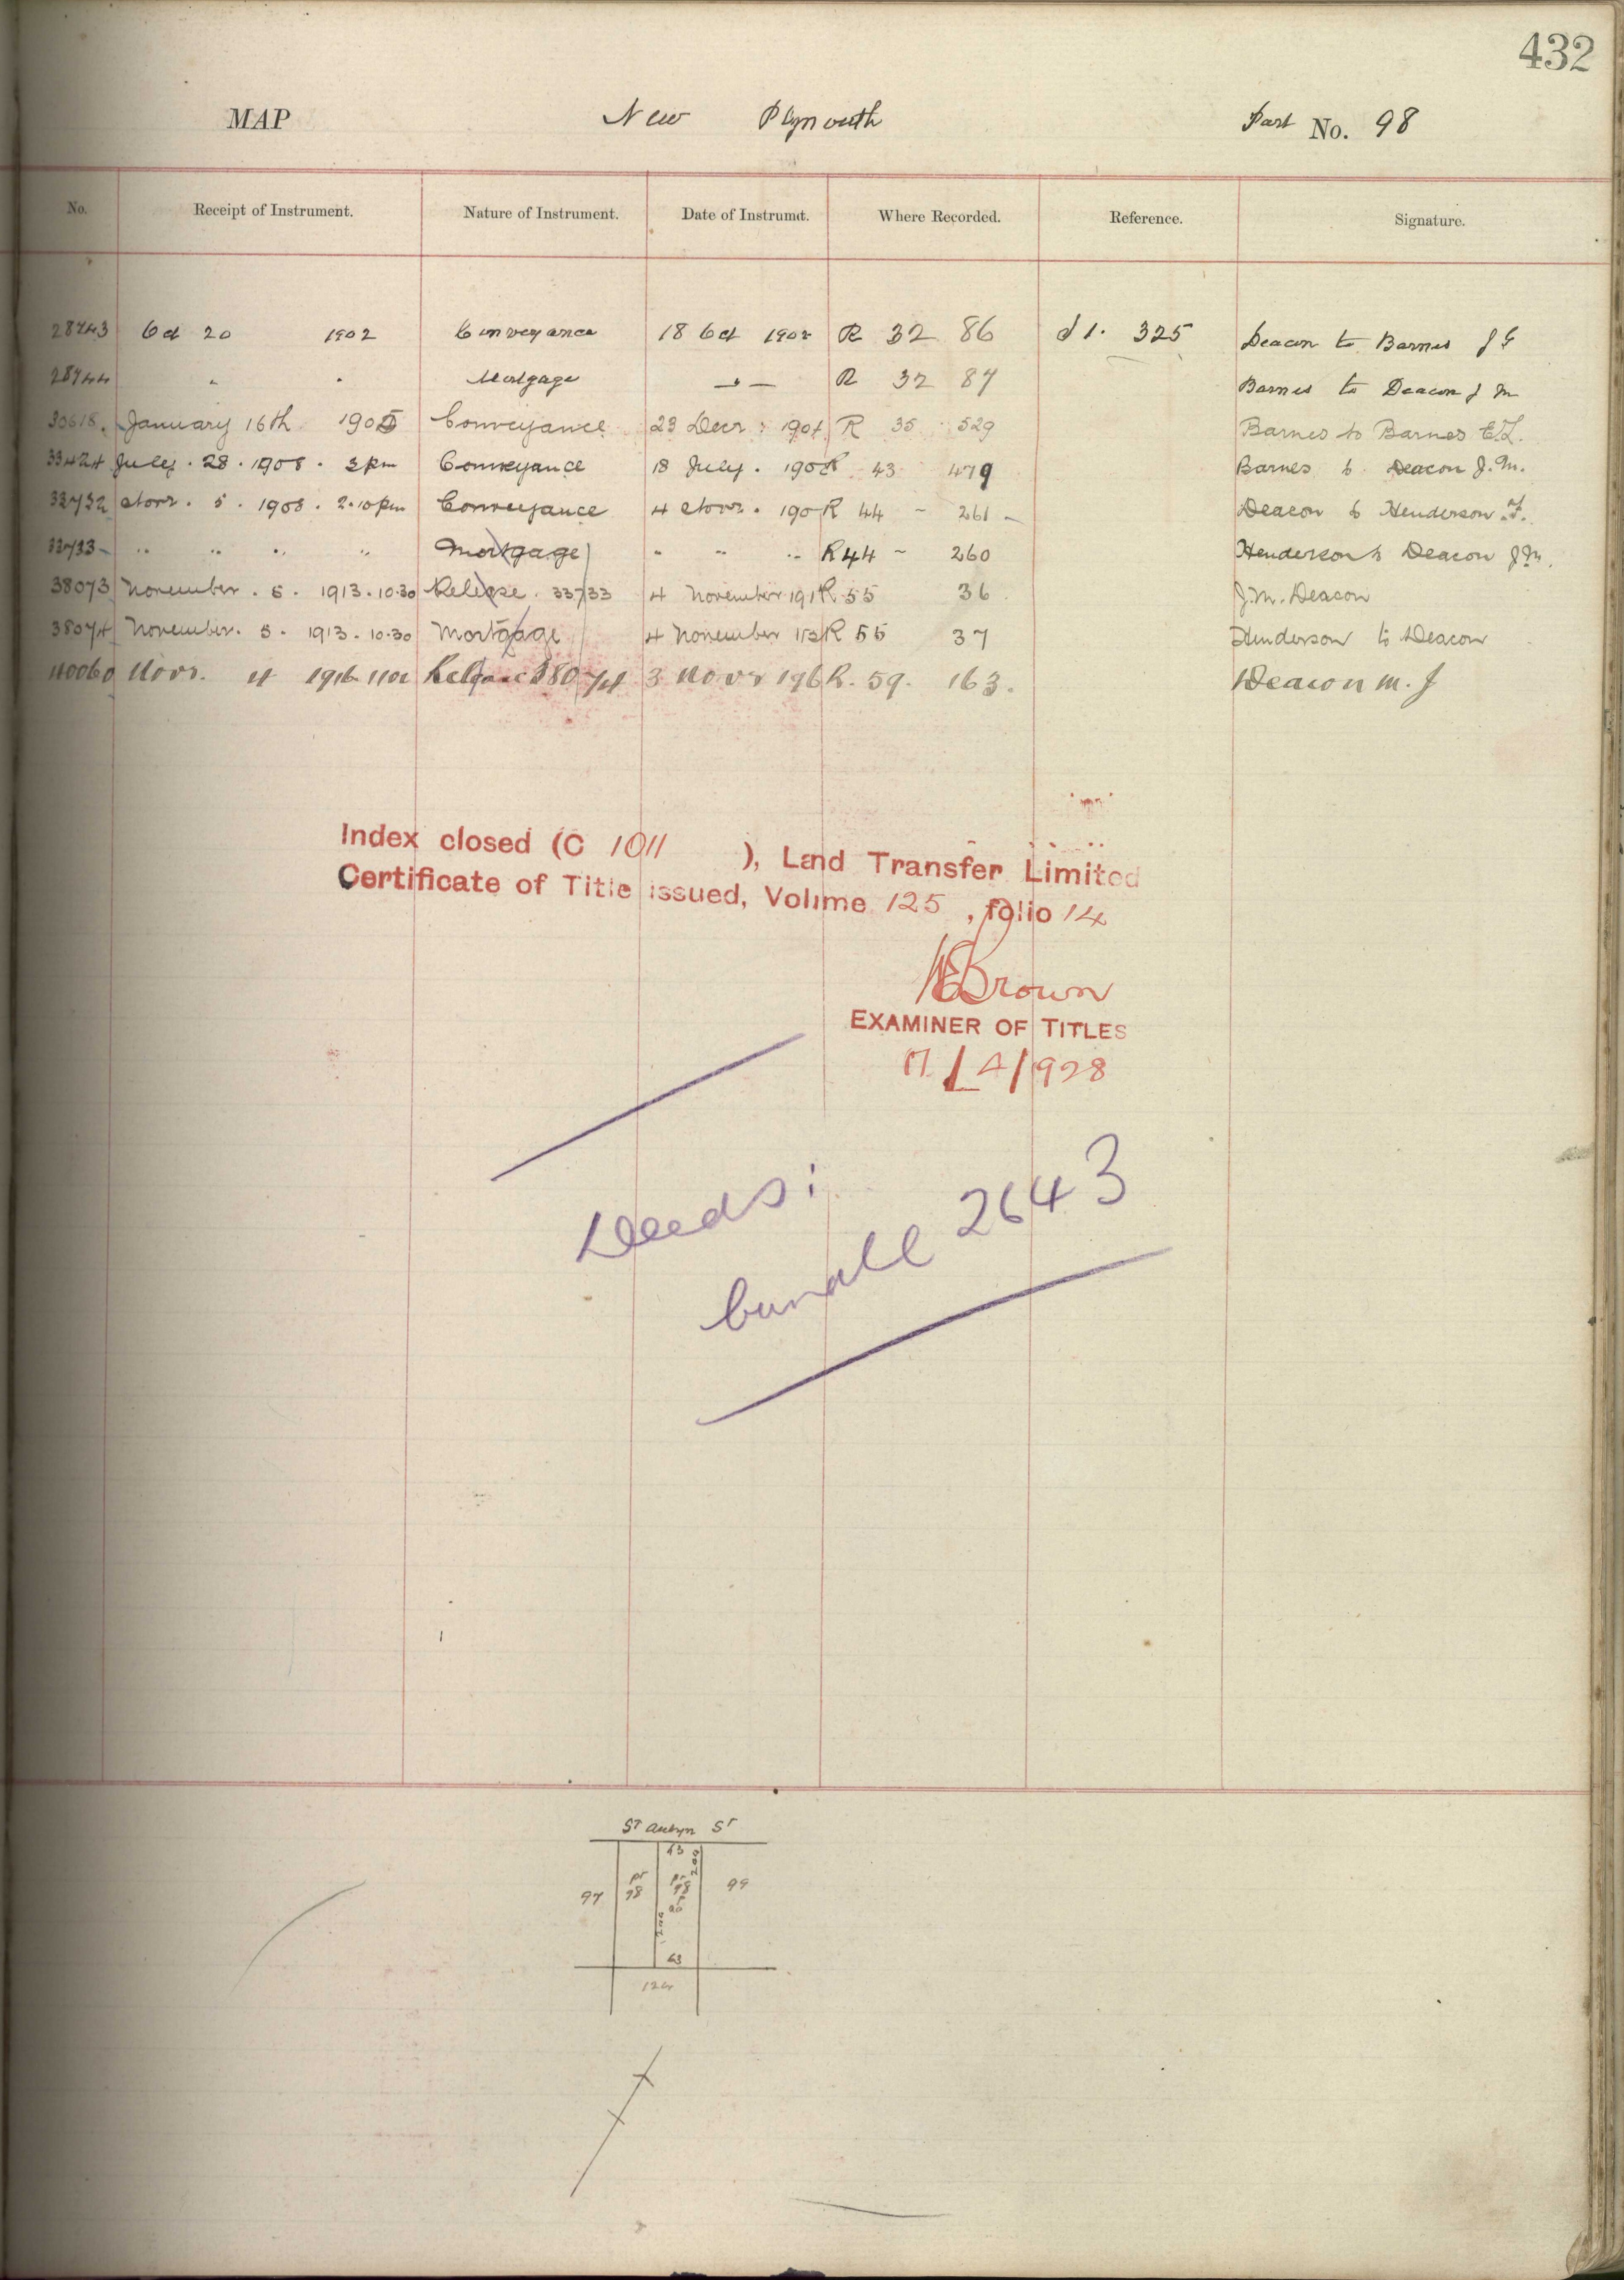 432
MAP New Plymouth Part No. 98
No. Receipt of Instrument. Nature of Instrument. Date of Instrumt. Where Recorded. Reference. Signature.
28743 Oct 20 1902 Conveyance 18 Oct 1902 R 32 86 I 1. 325 Deacon to Barnes J G
28744 " " Mortgage — " — R 32 87 Barnes to Deacon J M
30618. January 16th 1905 Conveyance 23 Decr. 1904 R 35 529 Barnes to Barnes E.L.
33424 July. 28. 1908. 3 pm Conveyance 18 July. 190 R 43 479 Barnes to Deacon J.M.
33732 Novr. 5. 1908. 2.10 pm Conveyance 4 Novr. 190 R 44 ~ 261 ~ Deacon to Henderson F.
33733 ~ " " " " Mortgage " " " R 44 ~ 260 Henderson to Deacon J M.
38073 November. 5. 1913. 10.30 Release. 33733 4 November 191 R 55 36 J.M. Deacon
38074 November. 5. 1913. 10.30 Mortgage 4 November 1913 R 55 37 Henderson to Deacon
40060 Novr. 4 1916 Release 38074 3 Novr 1916 R. 59. 163. Deacon M. J
Index closed (C 1011 ), Land Transfer Limited
Certificate of Title issued, Volume 125, folio 14
Brown
EXAMINER OF TITLES
/4/1928
Deeds:
bundle 2643
St Aubyn St
43 200
97 pt 98 pt 98 99
200
43
124